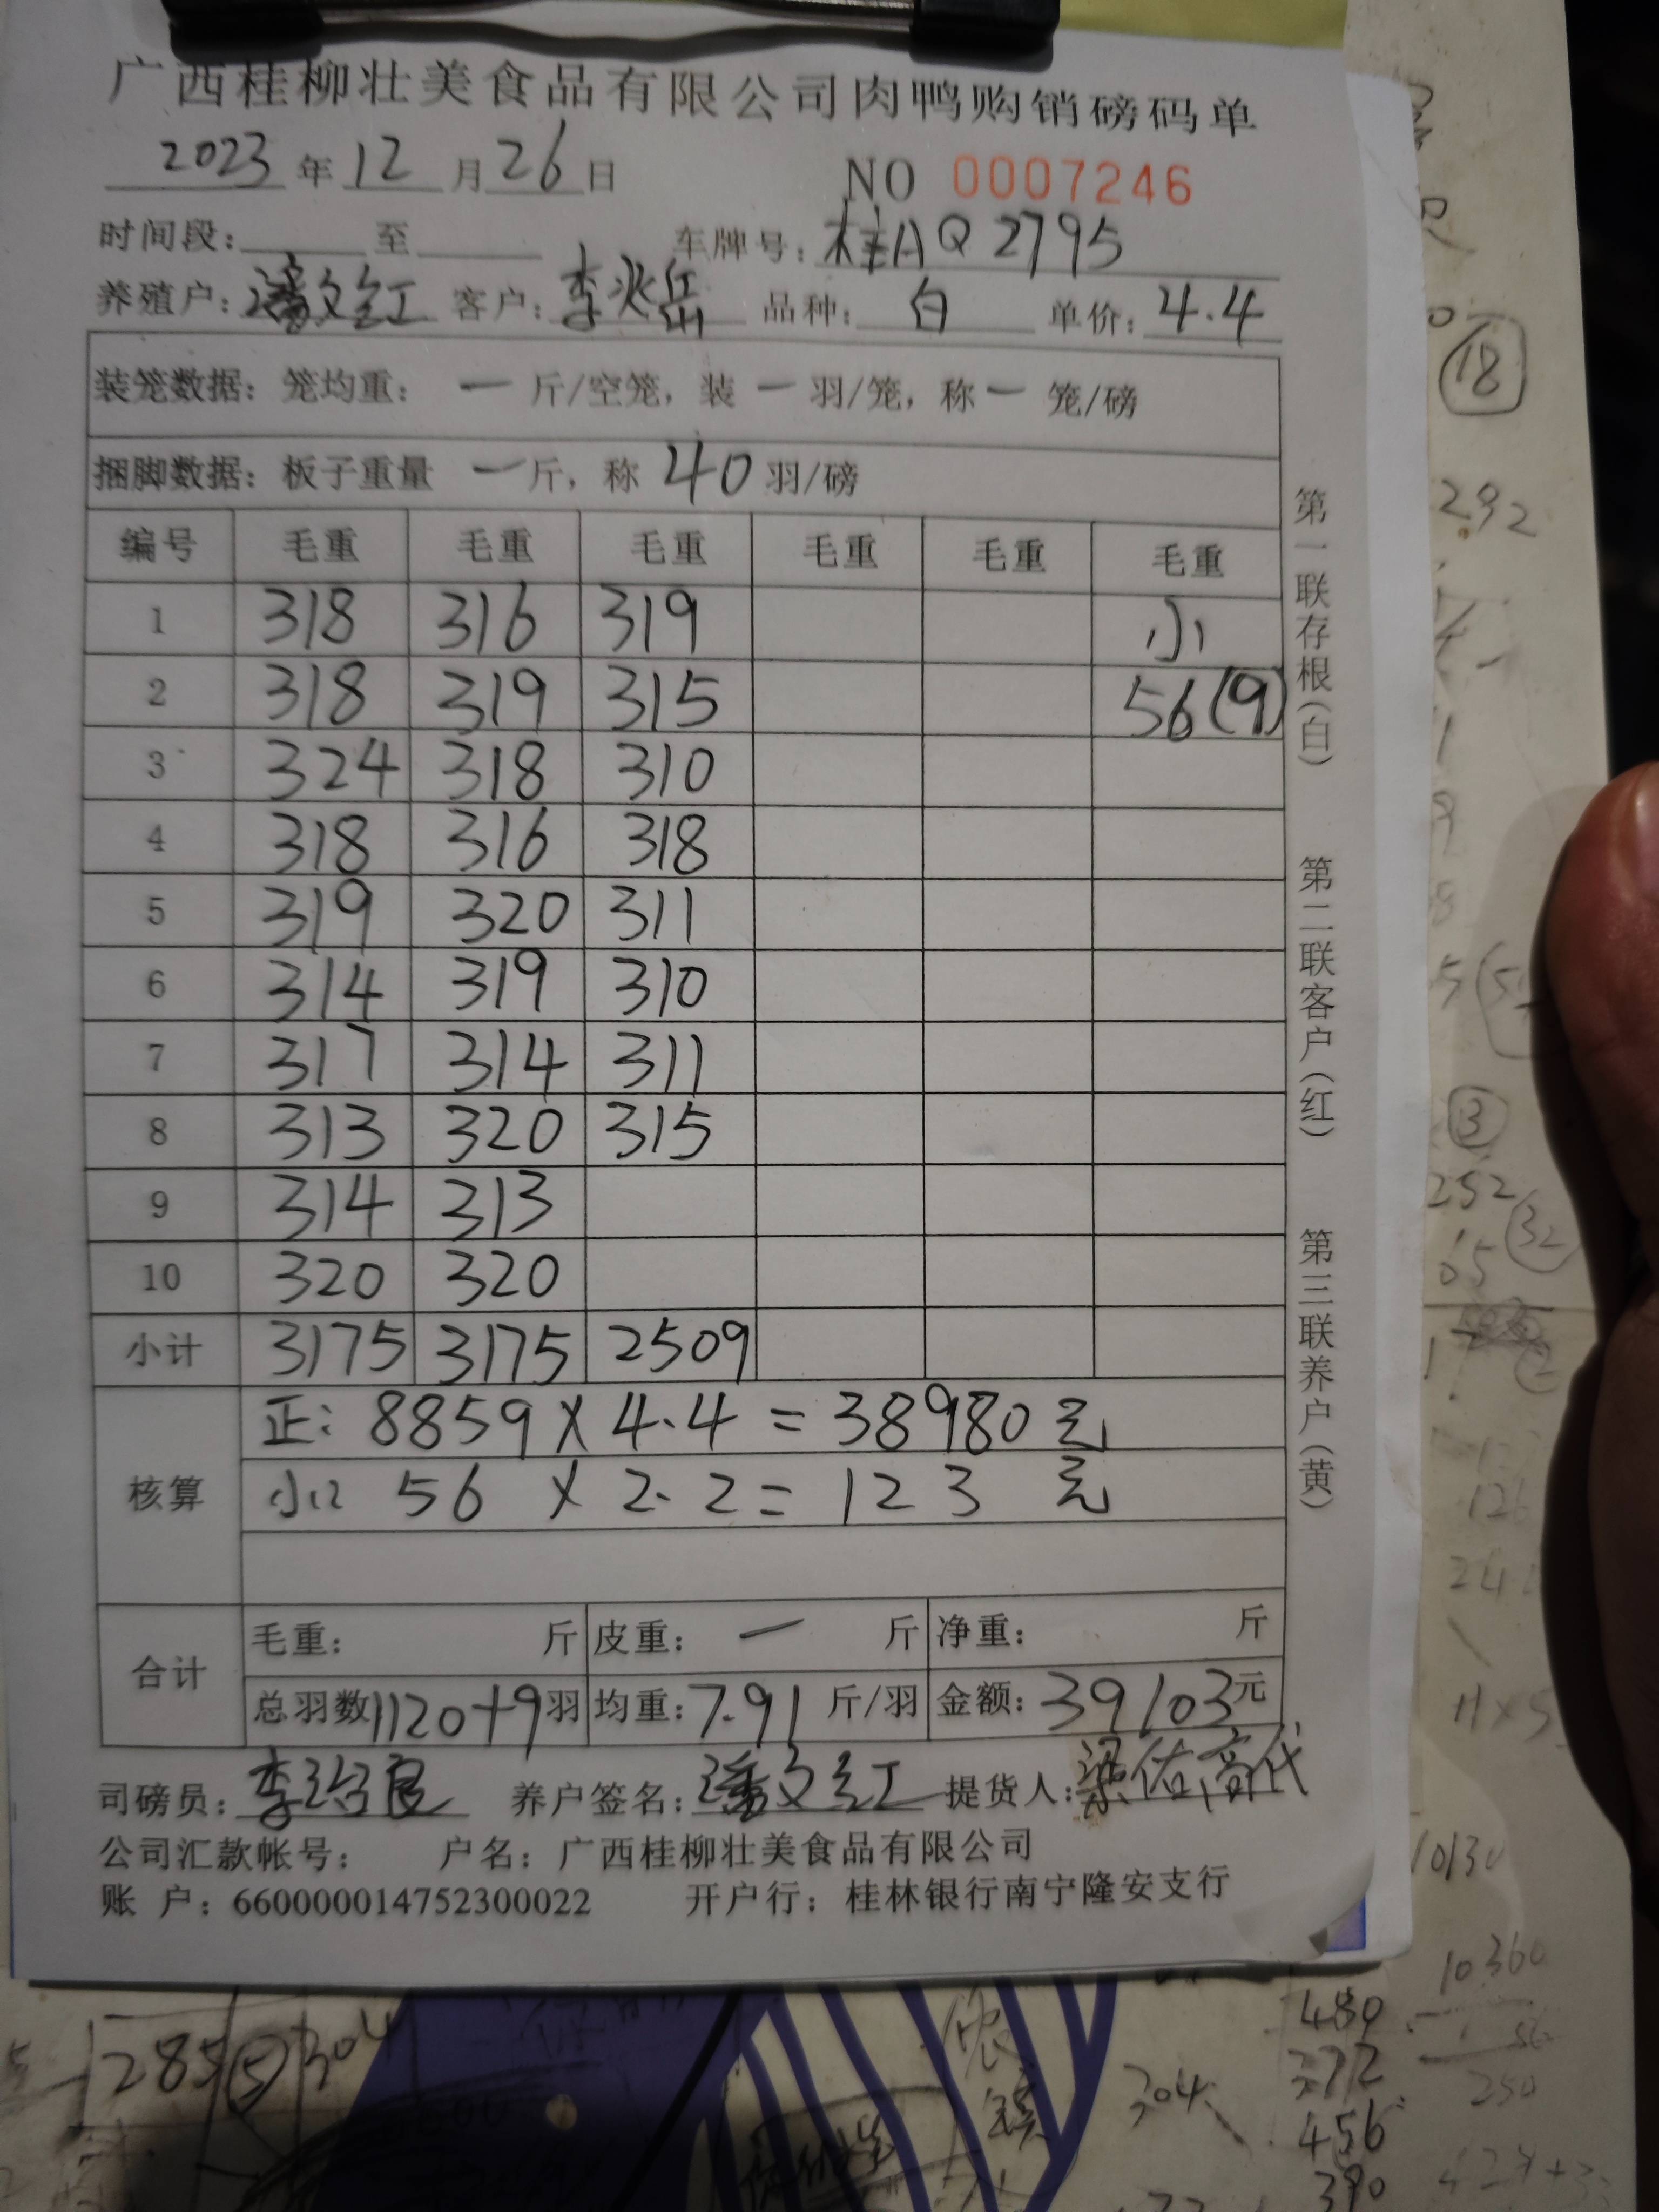 广西桂柳壮美食品有限公司肉鸭购销磅码单
2023 年 12 月 26 日 NO 0007246
时间段: 至 车牌号: 桂AQ2795
养殖户: 潘文红 客户: 李兆岳 品种: 白 单价: 4.4
装笼数据: 笼均重: 一 斤/空笼, 装 一 羽/笼, 称 一 笼/磅
捆脚数据: 板子重量 一 斤, 称 40 羽/磅
编号 毛重 毛重 毛重 毛重 毛重 毛重
1 318 316 319 小
2 318 319 315 56(9)
3 324 318 310
4 318 316 318
5 319 320 311
6 314 319 310
7 317 314 311
8 313 320 315
9 314 313
10 320 320
小计 3175 3175 2509
核算
正: 8859 X 4.4 = 38980 元
小: 56 X 2.2 = 123 元
合计
毛重: 斤 皮重: 一 斤 净重: 斤
总羽数 1120+9 羽 均重: 7.91 斤/羽 金额: 39103 元
司磅员: 李治良 养户签名: 潘文红 提货人: 梁佑高代
公司汇款帐号: 户名: 广西桂柳壮美食品有限公司
账 户: 660000014752300022 开户行: 桂林银行南宁隆安支行
第一联存根(白) 第二联客户(红) 第三联养户(黄)
18
292
3
252
32
65
10130
10360
250
285 5 304
304
480
372
456
390